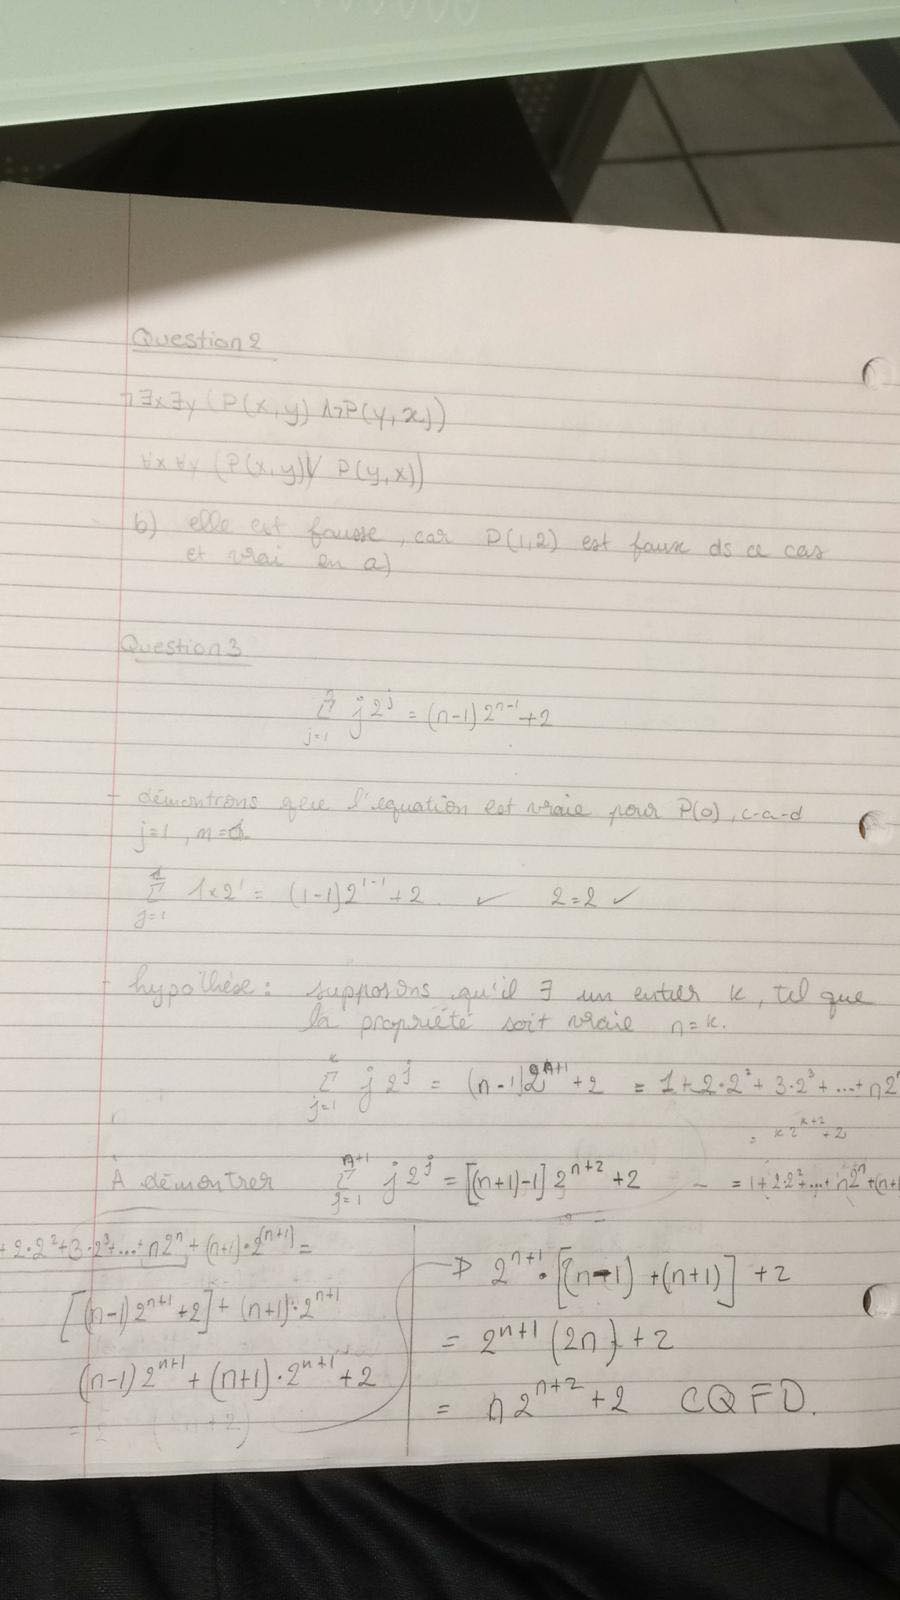 Question 2
¬∃x∃y (P(x,y) ∧¬P(y,x))
∀x ∀y (P(x,y) V P(y,x))
b) elle est fausse, car P(1,2) est faux ds ce cas
et vrai en a)
Question 3
n Σ j=1 j2^j = (n-1) 2^(n-1) + 2
- démontrons que l'equation est vraie pour P(0), c-a-d
j=1, n=1
1 Σ j=1 1×2^1 = (1-1)2^(1-1) + 2 ✓ 2=2 ✓
- hypothèse : supposons qu'il ∃ un entier k, tel que
la propriété soit vraie n=k.
k Σ j=1 j2^j = (n-1)2^(n+1) + 2 = 1+2·2^2+3·2^3+...+n2
= k2^(k+2)+2
À démontrer n+1 Σ j=1 j2^j = [(n+1)-1] 2^(n+2) + 2 = 1+2·2^2+...+n2^n+(n+1
+2·2^2+3·2^3+...+n2^n+(n+1)·2^(n+1) =
[(n-1)2^(n+1)+2]+(n+1)·2^(n+1)
(n-1)2^(n+1)+(n+1)·2^(n+1)+2
2^(n+1)·[(n-1)+(n+1)]+2
= 2^(n+1)(2n)+2
= n2^(n+2)+2 CQFD.